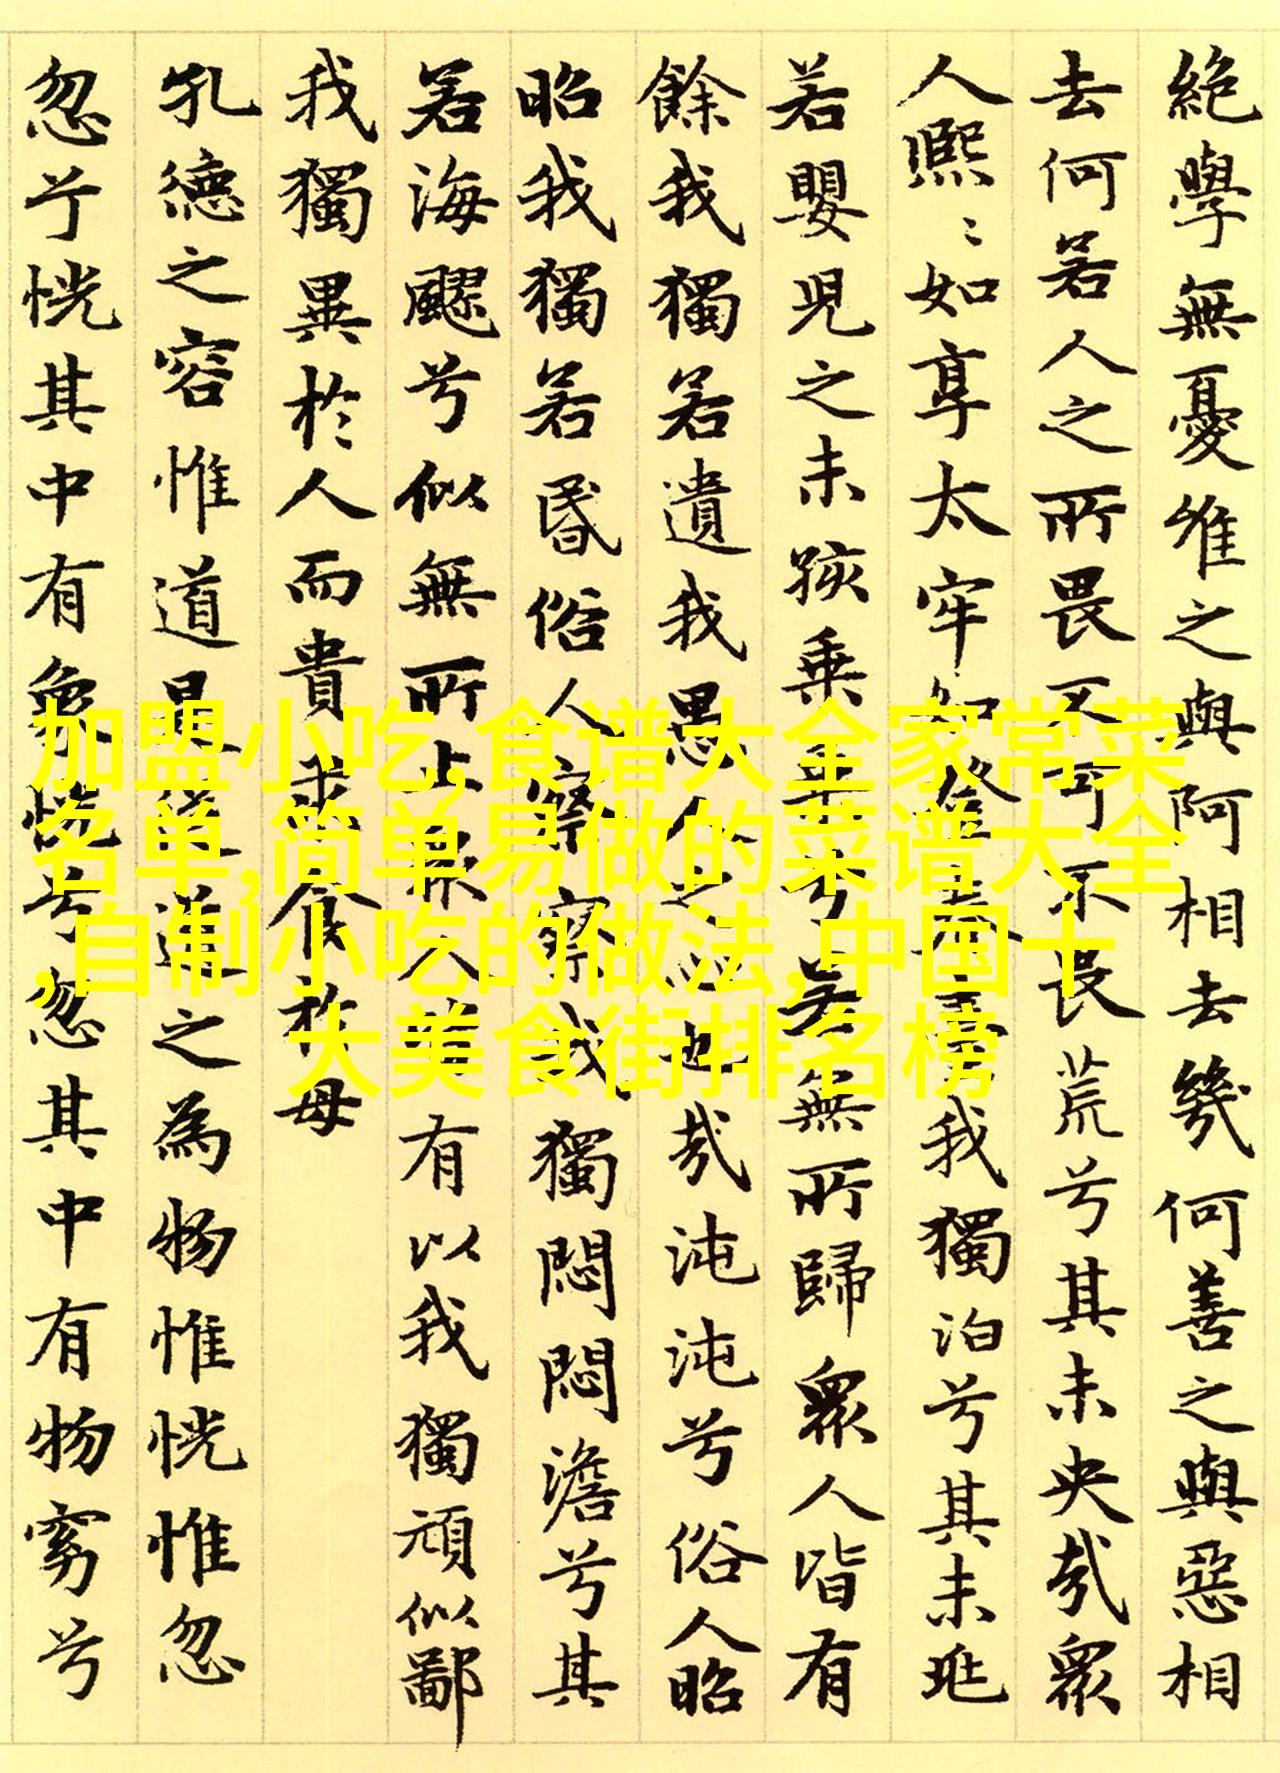 絶學無憂唯之與阿相去幾何善之與惡相
去何若人之所畏不可不畏荒兮其未央哉眾
人熙〻如享太牢如登春臺我獨泊兮其未兆
若嬰兒之未孩乘乘兮若無所歸眾人皆有
餘我獨若遺我愚人之心也哉沌沌兮俗人昭
昭我獨若昏俗人察察我獨悶悶澹兮其
若海飂兮似無所止眾人皆有以我獨頑似鄙
我獨異於人而貴求食於母
孔德之容惟道是從道之為物惟恍惟忽
忽兮恍其中有象恍兮忽其中有物窈兮
加盟小吃,食谱大全家常菜
名单,简单易做的菜谱大全
,自制小吃的做法,中国十
大美食街排名榜